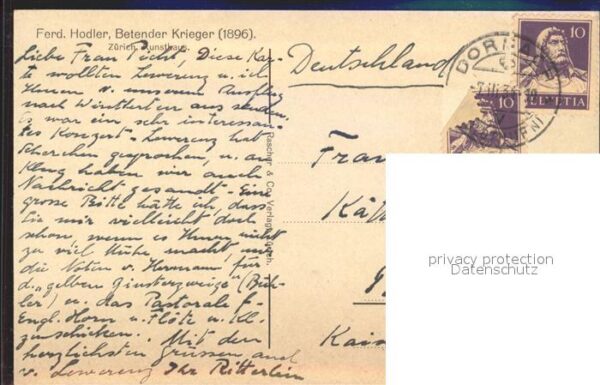 Ferd. Hodler, Betender Krieger (1896).
Zürich, Kunsthaus.
Liebe Frau Pecht, Diese Kar-
te wollten Lewerenz u. ich
Ihnen v. unserem Ausflug
nach Winterthur aus senden.
Es war ein sehr interessan-
tes Konzert - Lewerenz hat
Scherchen gesprochen, u. an
Klug haben wir auch
Nachricht gesandt - Eine
grosse Bitte hätte ich, dass
Sie mir vielleicht doch
schon wenn es Ihnen nicht
zu viel Mühe macht, mir
die Noten v. Hermann, für
d. "gelben Ginsterzweige" (Büh-
ler) u. das Pastorale f.
Engl. Horn u. Flöte u. Kl.
zuschicken. Mit den
herzlichsten Grüssen auch
v. Lewerenz Ihr Ritterlein
Rascher & Co. Verlag, Zürich.
Deutschland
Frau
Kai
10
HELVETIA
10
DORNACH
privacy protection
Datenschutz